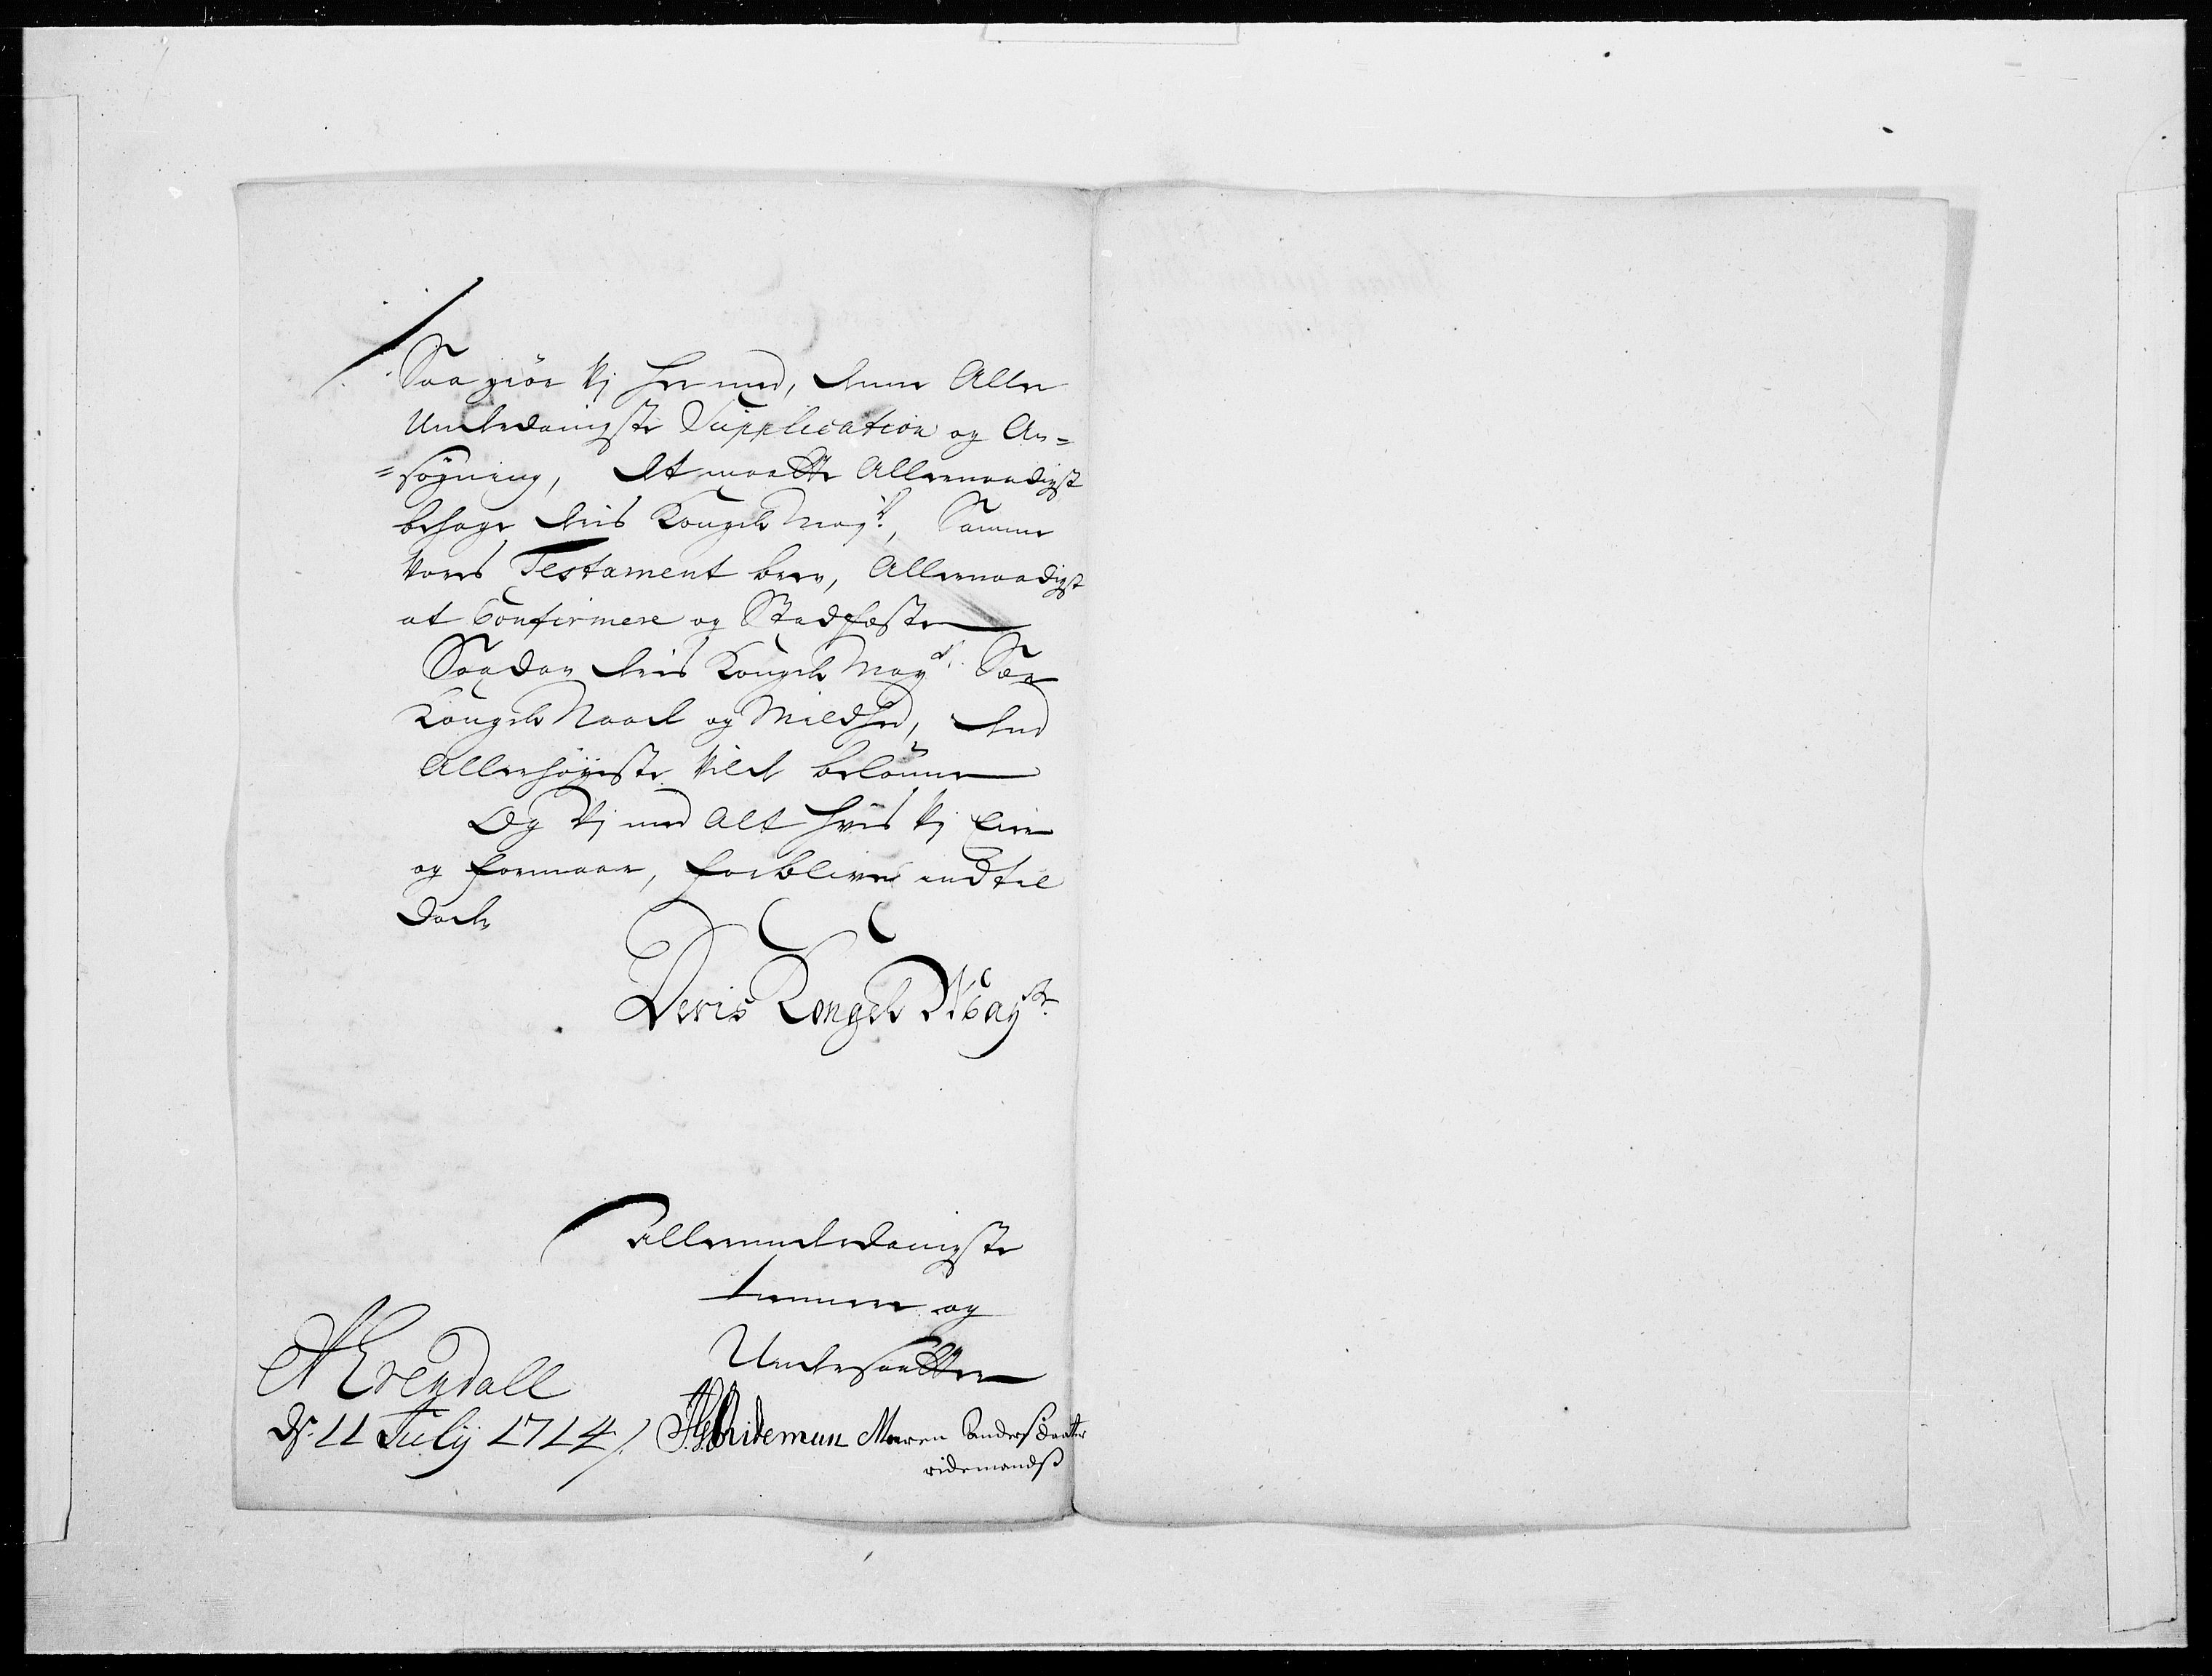 Saa giør vj her med, denne Aller
Underdanigste Supplication og An=
=søgning, det maatte Allernaadigst
behage deris Kongel: May:tt, Samme
vores Testament brev, Allernaadigst
at Confirmere og Stadfæste
Saadan deris Kongel: May:tt Stor
Kongel: Naade og Mildhed, Gud
Allerhøyeste vilde belønne
Og vj med Alt hvis vj Eier
og formaar, forblive indtil
døde
Deris Kongel: May:tts
Allerunderdanigste
tiennere og
Undersaatter
Arendall
ds: 11 July 1714
Rideman Maren Andersdaatter
ridemands